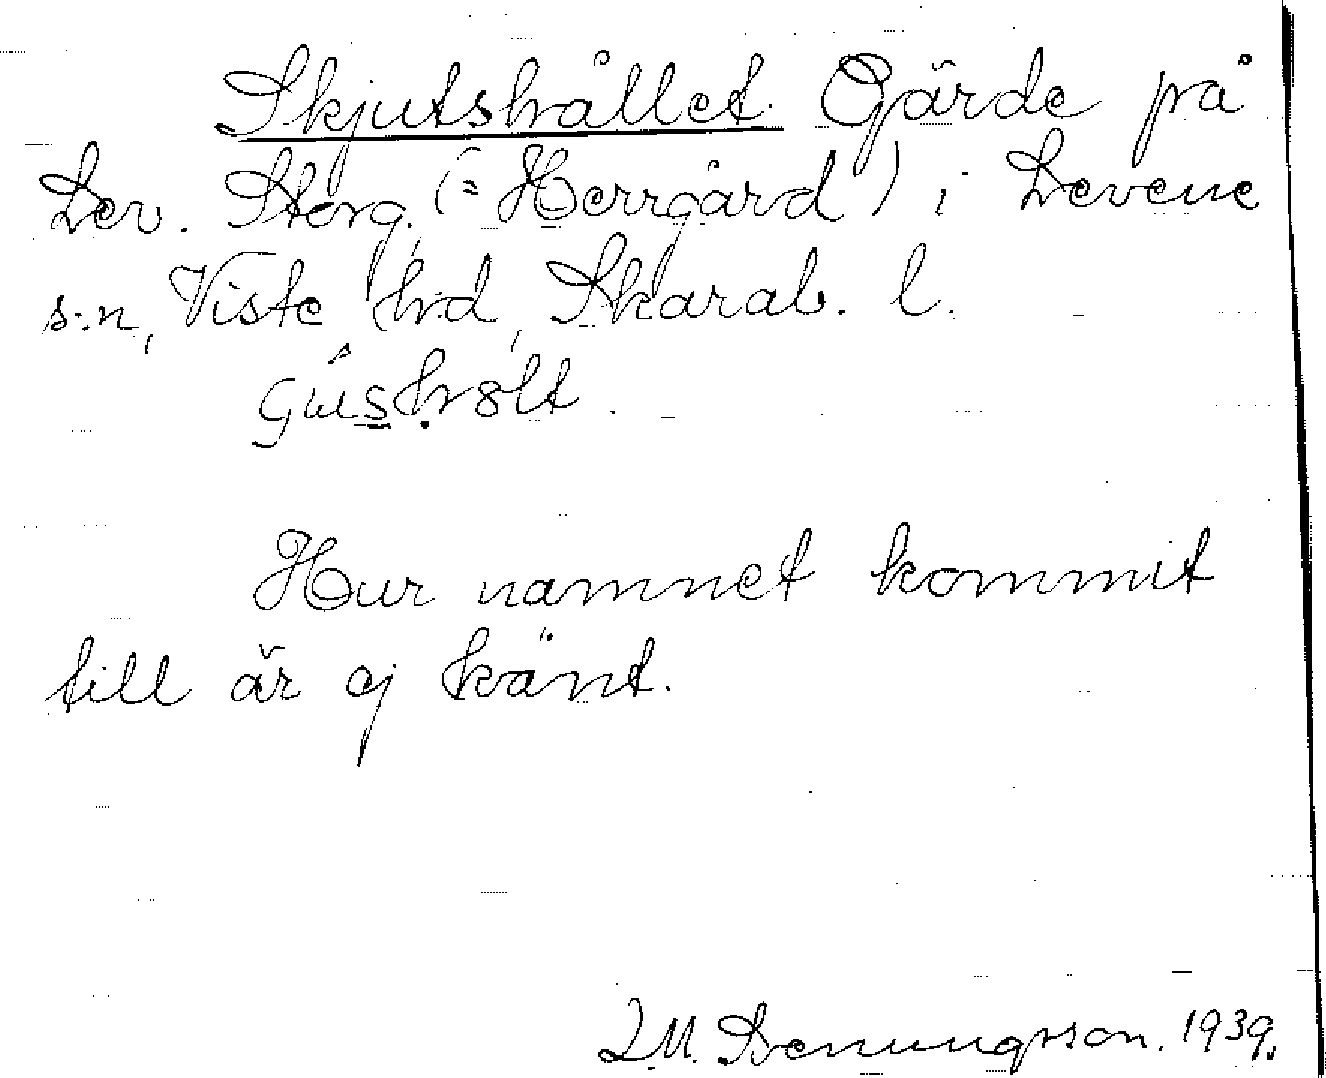 Skjutshållet. Gärde på
Lev. Storg. (= Herrgård) i Levene
s:n, Viste hd, Skarab. l.
Hur namnet kommit
till är ej känt.
I M. Svenungsson. 1939.